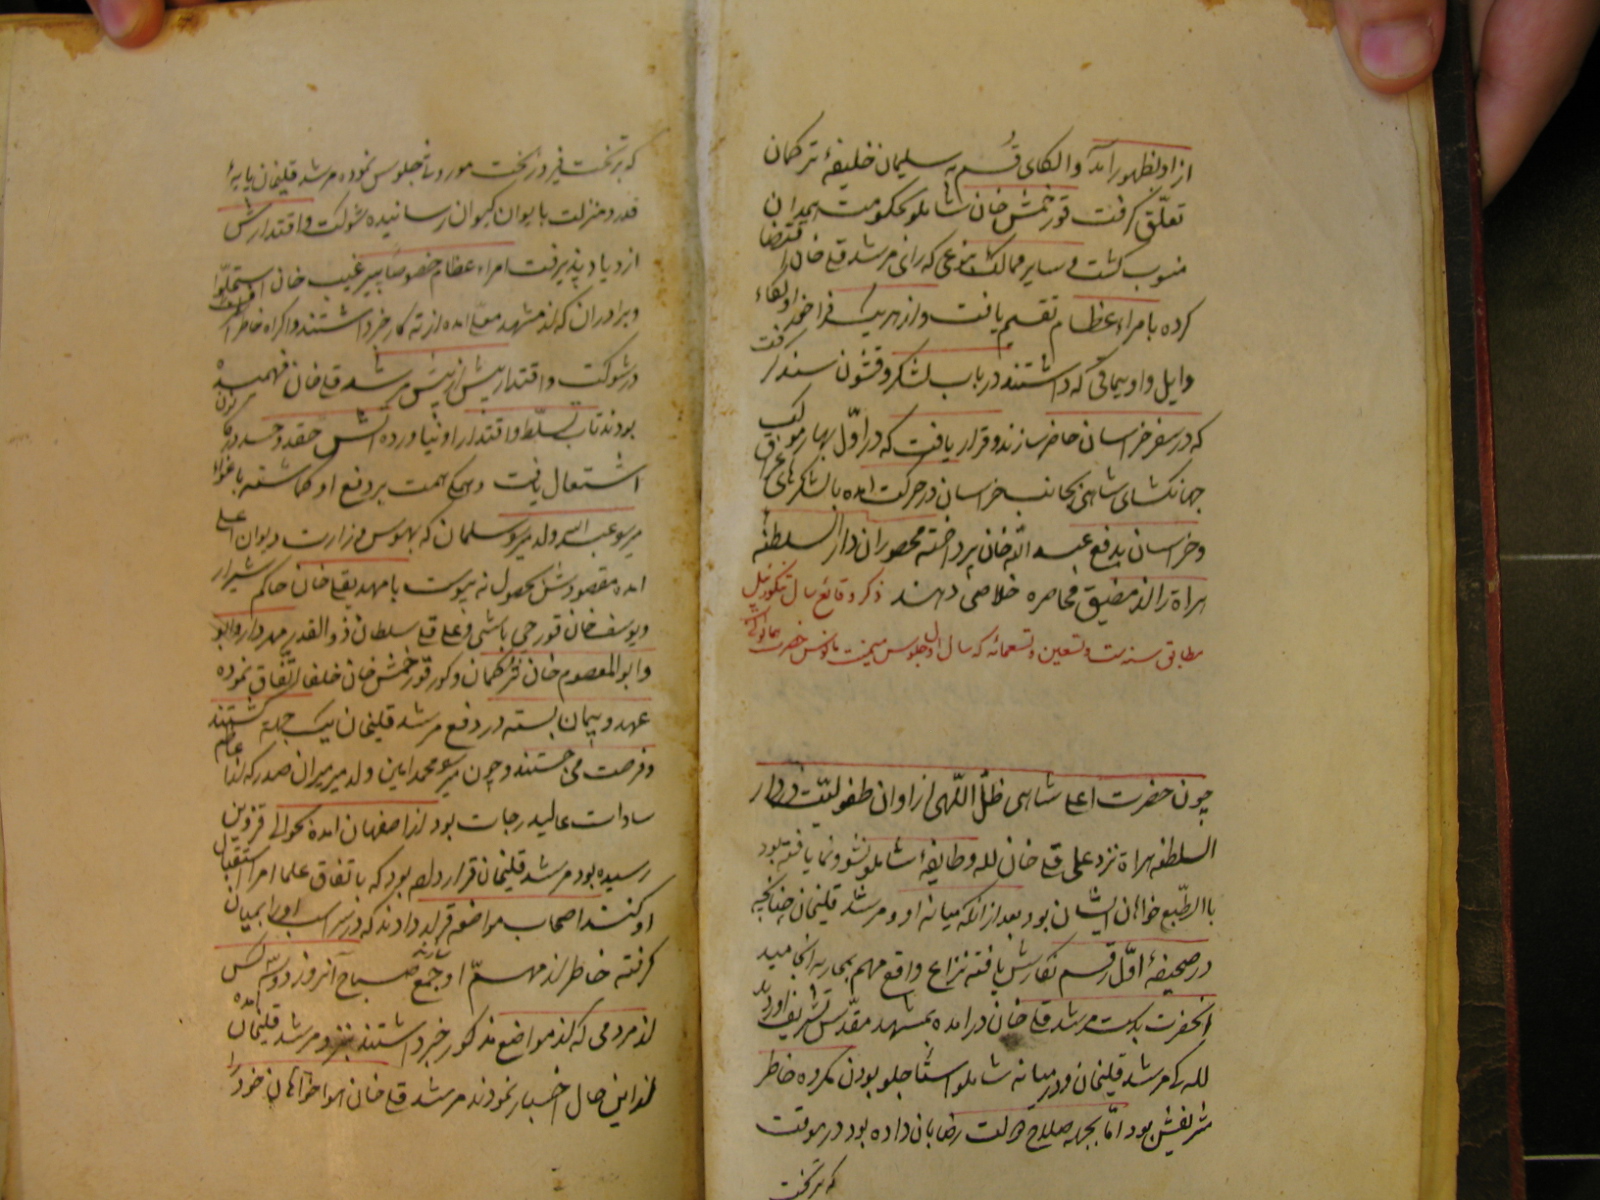 از او بظهور آمد و الکای قم به سلیمان خلیفهٔ ترکمان
تعلّق گرفت قورخمش خان شاملو بحکومت همدان
منسوب گشت و سایر ممالک بنوعی که رای مرشد قلی خان اقتضا
کرده بامراء عظام تقسیم یافت و از هر یک فراخور الکاء
و ایل و اویماقی که داشتند در باب لشکر و قشون سند گرفت
که در سفر خراسان حاضر سازند و قرار یافت که در اوّل بهار موکب
جهانگشای شاهی بجانب خراسان در حرکت آمده با لشکرهای عراق
و خراسان بدفع عبد الله خان پرداخته محصوران دار السلطنه
هراة را از مضیق محاصره خلاصی دهند ذکر وقائع سال تنکوزئیل
مطابق سنه ست و تسعین و تسعمائه که سال اوّل جلوس میمنت مانوس حضرت
چون حضرت اعلی شاهی ظلّ اللّهی از اوان طفولیّت در دار
السلطنه هراة نزد علی قلی خان لله و طایفهٔ شاملو نشو و نما یافته بود
باالطّبع خواهان ایشان بود بعد از آنکه میانه او و مرشد قلیخان چنانچه
در صحیفهٔ اوّل رقم نگارش یافته نزاع واقع مهم بمحاربه انجامید
آنحضرت بدست مرشد قلی خان درآمده بمشهد مقدّس تشریف آورد
للهگی مرشد قلیخان و در میانه شاملو استاجلو بودن مکروه خاطر
شریفش بود امّا بجهه صلاح دولت رضا بان داده بود در هوقت
که بر تخت
که بر تخت فیروز بخت موروثی جلوس نموده مرشد قلیخان پایهٔ
قدر و منزلت بایوان کیوان رسانیده شوکت و اقتدارش
ازدیاد پذیرفت امراء عظام خصوصا پیر غیب خان استاجلو
و برادران که از مشهد معلّی آمده از ته کار خبر داشتند و اکراه خاطر اشرف
در شوکت و اقتدار بیش از پیش مرشد قلی خان فهمیده
بودند تاب تسلّط و اقتدار او نیاورده آتش حقد و حسد در کانون
اشتعال یافت و همگی همت بر دفع او گماشته باغواء
میر عبد الله ولد میر سلمان که بهوس وزارت دیوان اعلی
آمده مقصودش بحصول نه پیوست با مهدیقلی خان حاکم شیراز
و یوسف خان قورچی باشی و علی قلی سلطان ذوالقدر مهردار و ابو
و ابو المعصوم خان ترکمان و کور قورخمش خان خلفا اتفاق نموده
عهد و پیمان بسته در دفع مرشد قلیخان یک جهة گشتند
و فرصت می جستند و چون میر محمد امین ولد میر میران صدر که از اعاظم
سادات عالیدرجات بود از اصفهان آمده بحوالی قزوین
رسیده بود مرشد قلیخان قرار داده بود که باتفاق علما امرا استقبال
او کنند اصحاب مواضعه قرار دادند که در سر اسب او را بمیان
گرفته خاطر از مهمّ او جمع سازند صباح آنروز دو سه کس
از مردمی که از مواضع مذکور خبر داشتند بنزد مرشد قلیخان آمده
از این حال اخبار نمودند مرشد قلی خان هواخواهان خود را